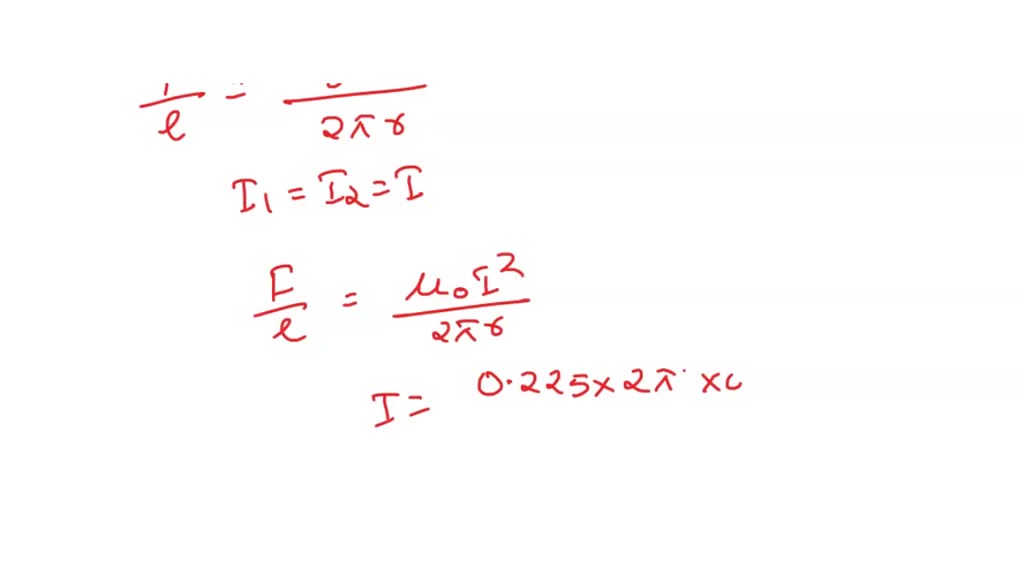 /ℓ = / 2πr
I₁ = I₂ = I
F/ℓ = μ₀I²/2πr
I = 0.225 × 2π ×